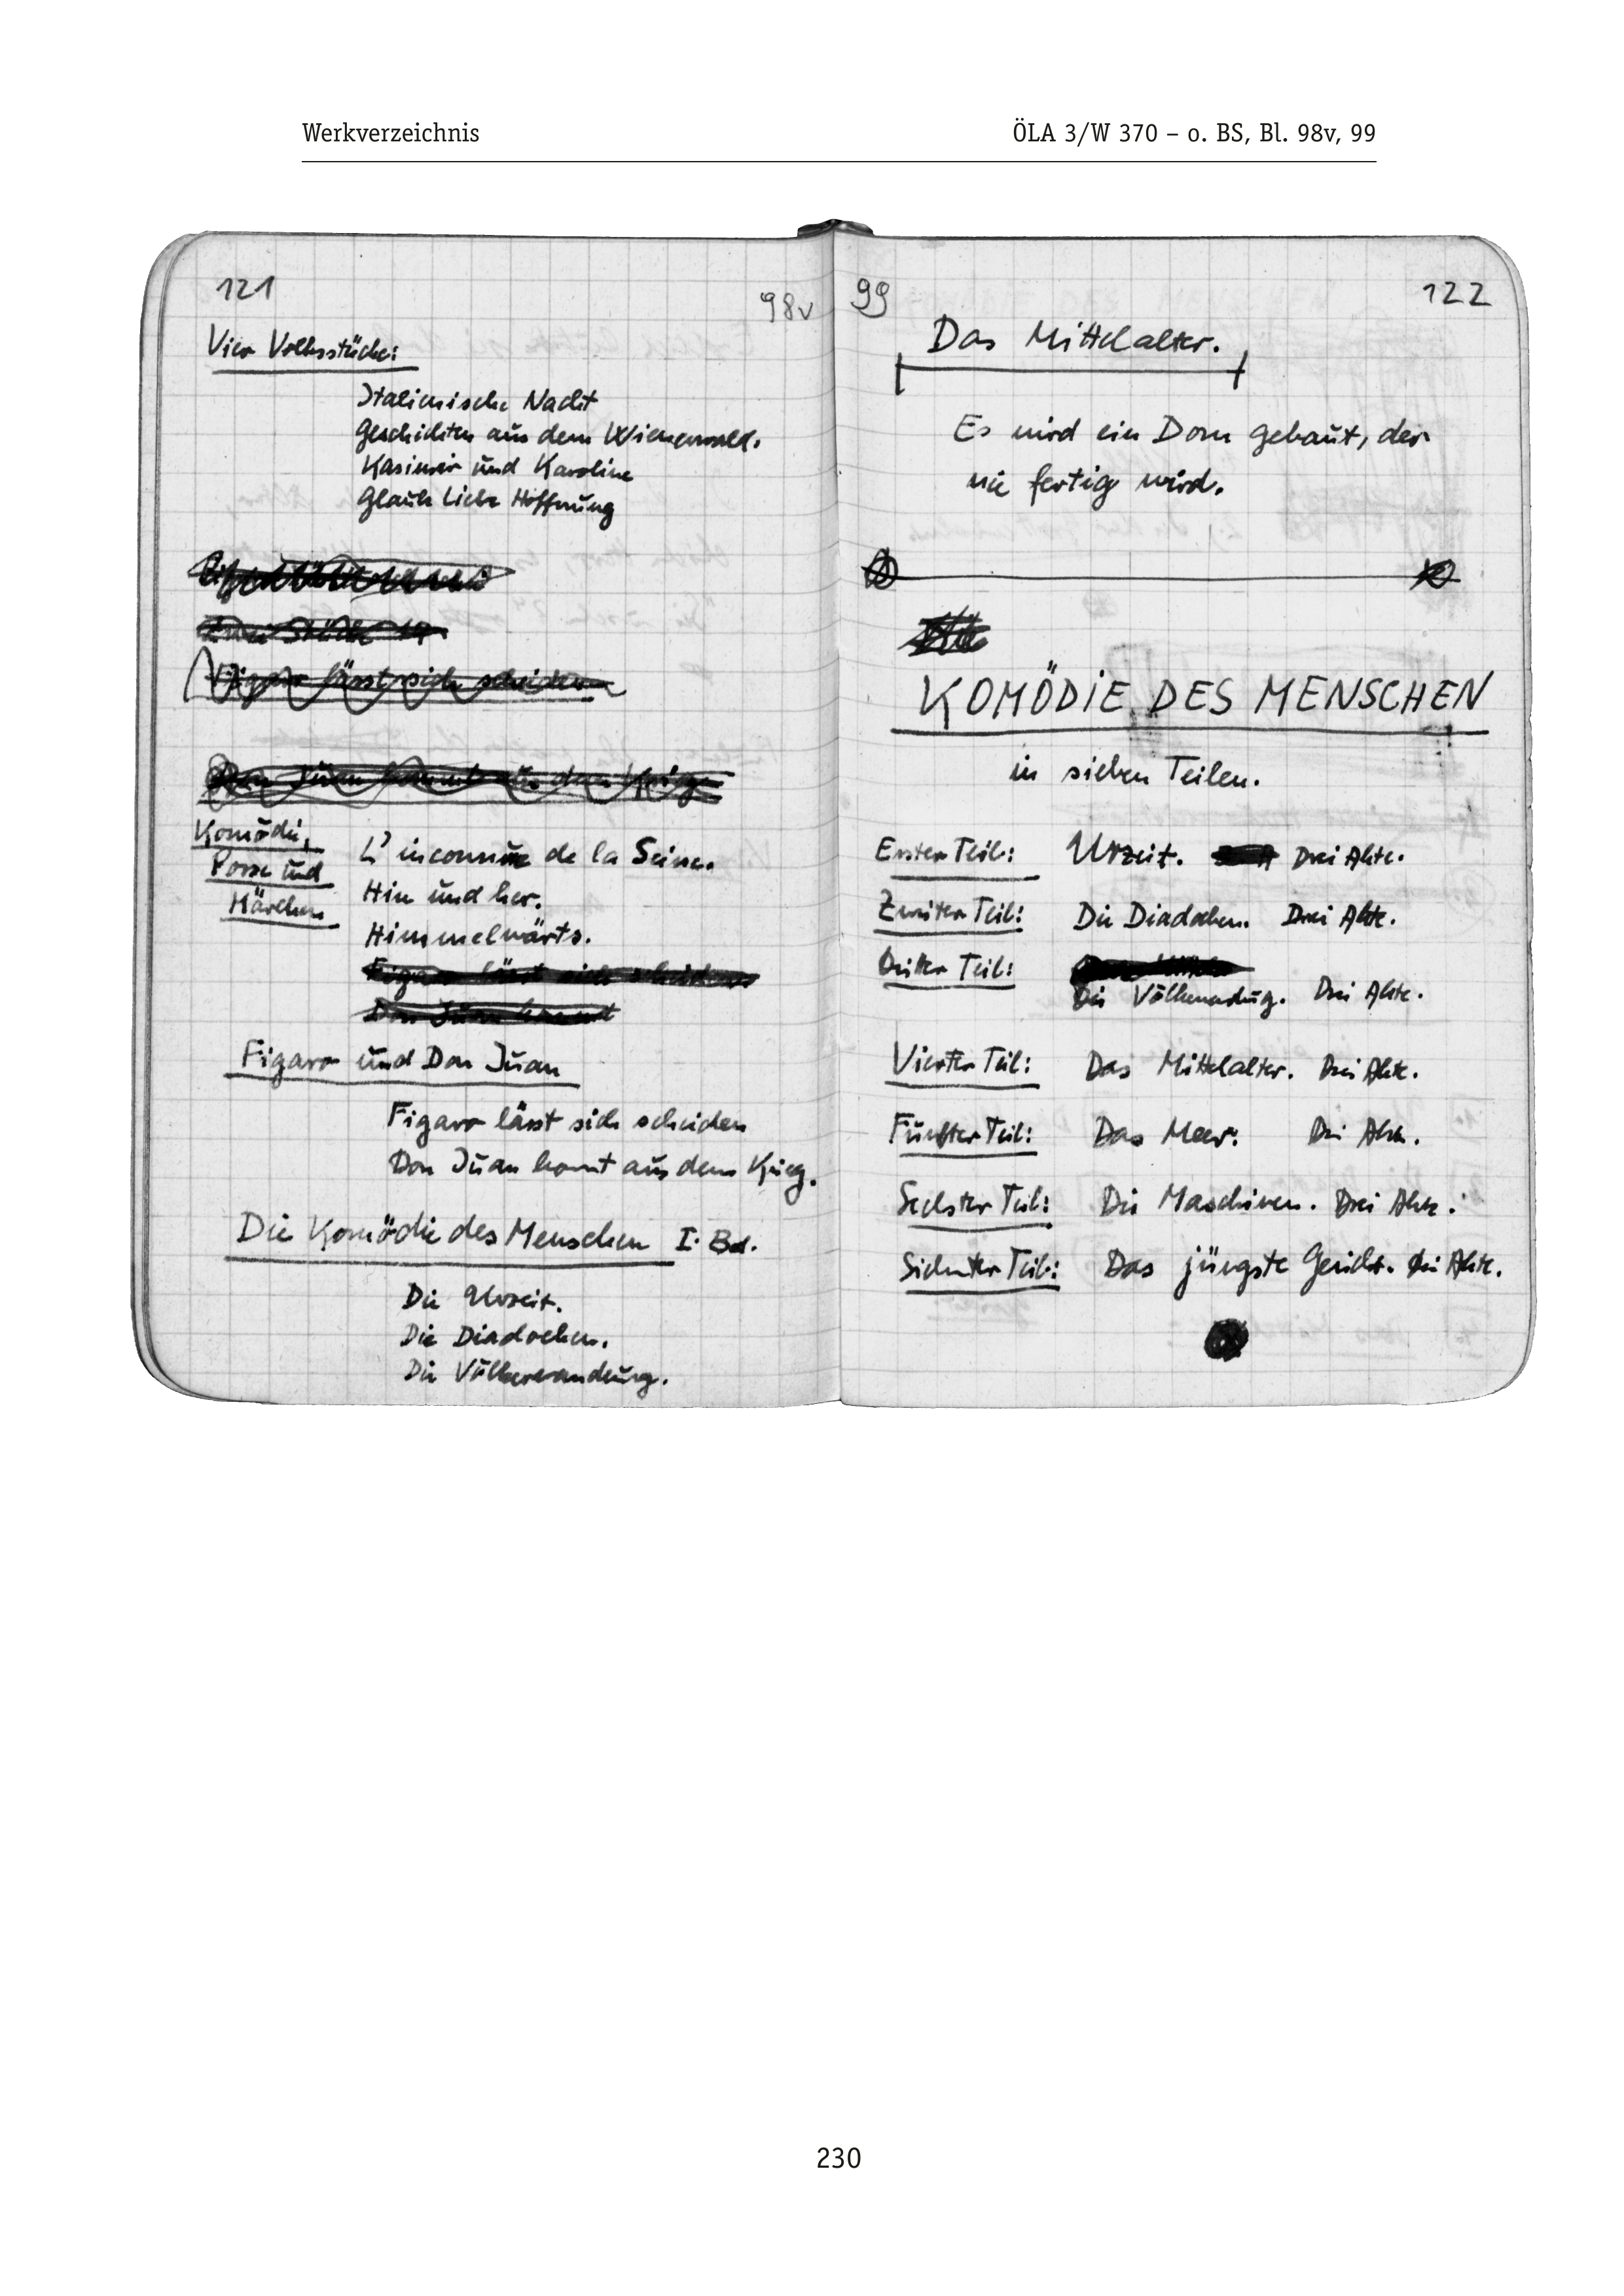 Werkverzeichnis
ÖLA 3/W 370 – o. BS, Bl. 98v, 99
121
98v
Vier Volksstücke:
Italienische Nacht
Geschichten aus dem Wienerwald.
Kasimir und Karoline
Glaube Liebe Hoffnung
Figaro lässt sich scheiden
Don Juan kommt aus dem Krieg
Komödie,
Posse und
Märchen
L'inconnue de la Seine.
Hin und her.
Himmelwärts.
Figaro lässt sich scheiden
Don Juan kommt
Figaro und Don Juan
Figaro lässt sich scheiden
Don Juan kommt aus dem Krieg.
Die Komödie des Menschen I. Bd.
Die Urzeit.
Die Diadochen.
Die Völkerwanderung.
99
122
Das Mittelalter.
Es wird ein Dom gebaut, der
nie fertig wird.
KOMÖDIE DES MENSCHEN
in sieben Teilen.
Erster Teil: Urzeit. Drei Akte.
Zweiter Teil: Die Diadochen. Drei Akte.
Dritter Teil:
Die Völkerwanderung. Drei Akte.
Vierter Teil: Das Mittelalter. Drei Akte.
Fünfter Teil: Das Meer. Drei Akte.
Sechster Teil: Die Maschinen. Drei Akte.
Siebenter Teil: Das jüngste Gericht. Drei Akte.
230